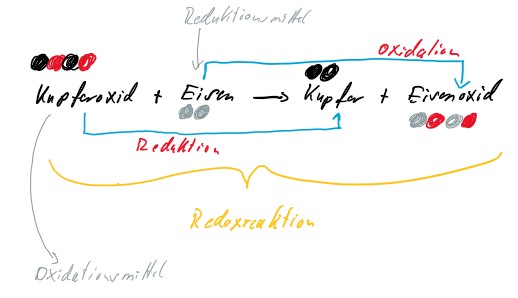 Reduktionsmittel
Oxidation
Kupferoxid + Eisen → Kupfer + Eisenoxid
Reduktion
Redoxreaktion
Oxidationsmittel